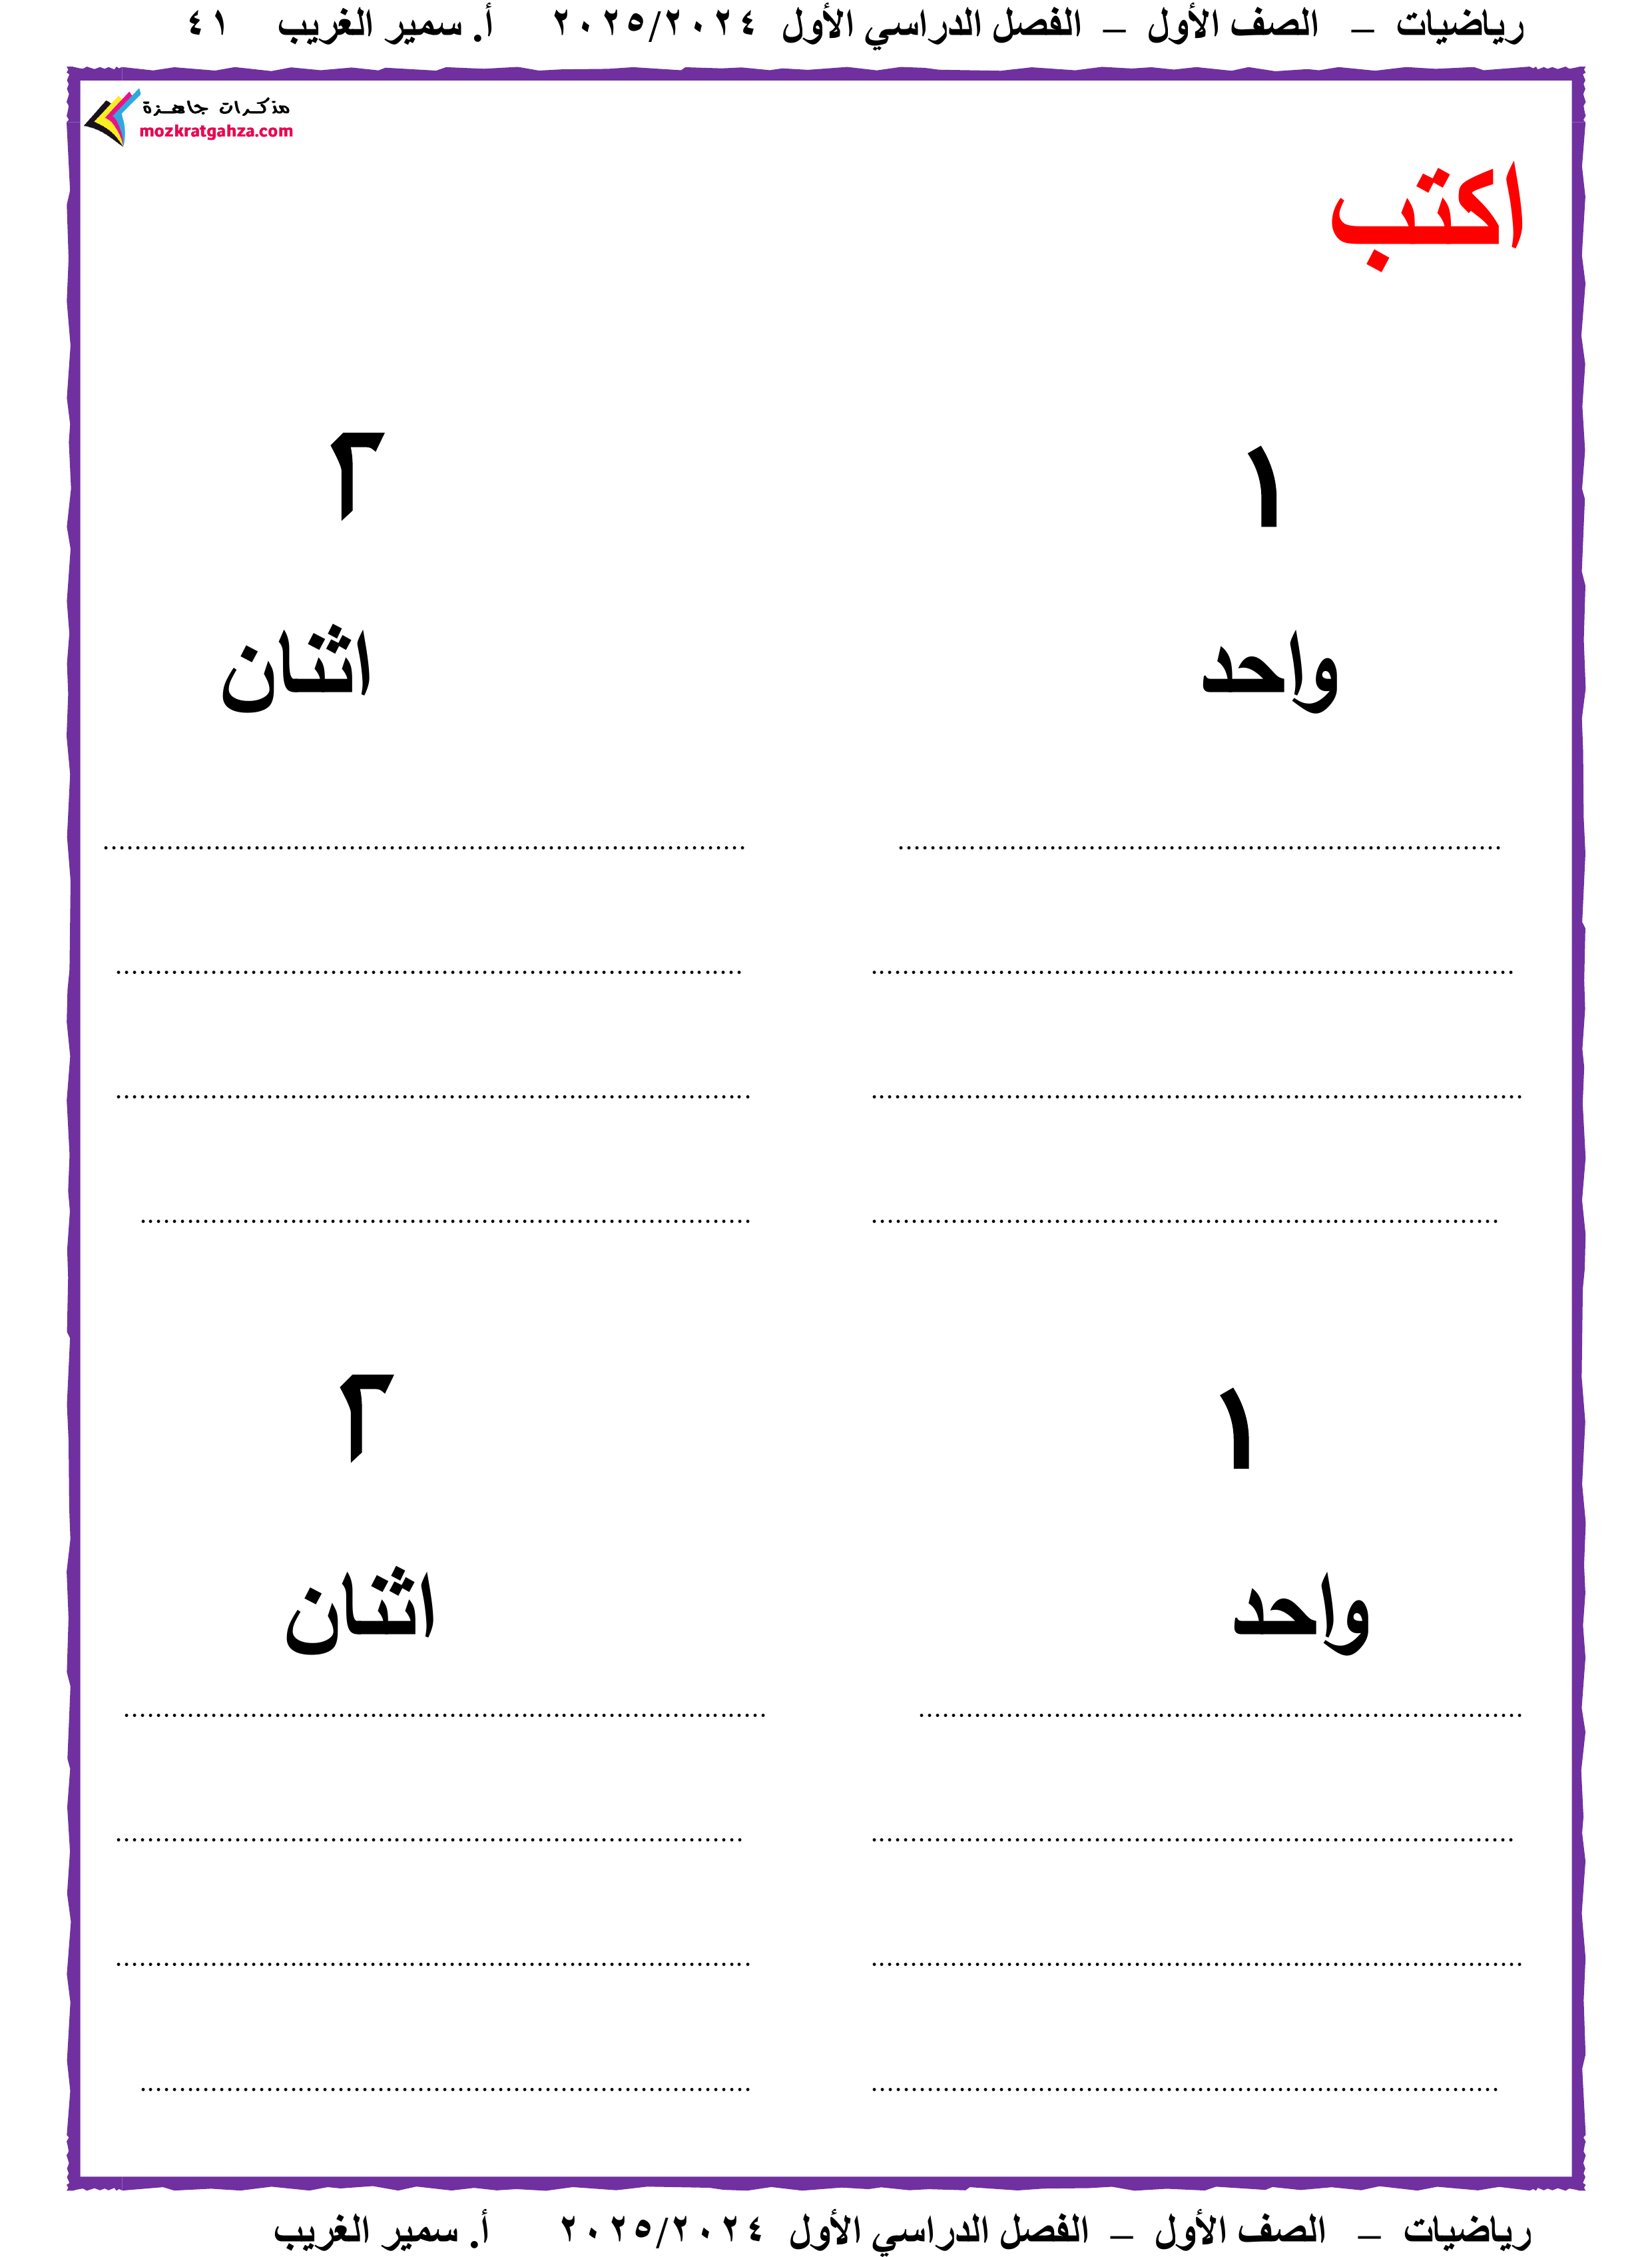 رياضيات – الصف الأول – الفصل الدراسي الأول ٢٠٢٥/٢٠٢٤ أ. سمير الغريب ٤١
مذكرات جاهزة
mozkratgahza.com
اكتب
١ ٢
واحد اثنان
........................................ ........................................
........................................ ........................................
........................................ ........................................
........................................ ........................................
١ ٢
واحد اثنان
........................................ ........................................
........................................ ........................................
........................................ ........................................
........................................ ........................................
رياضيات – الصف الأول – الفصل الدراسي الأول ٢٠٢٥/٢٠٢٤ أ. سمير الغريب